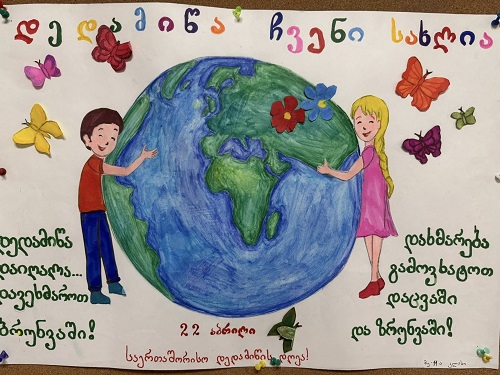 დედამიწა ჩვენი სახლია
დედამიწა
დაიღალა...
დავეხმაროთ
ბრუნვაში!
დახმარება
გამოვხატოთ
დაცვაში
და ზრუნვაში!
22 აპრილი
საერთაშორისო დედამიწის დღეა!